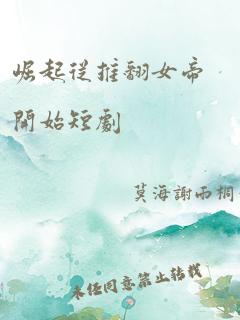 崛起從推翻女帝
開始短劇
莫海謝雨桐
未經同意禁止轉載